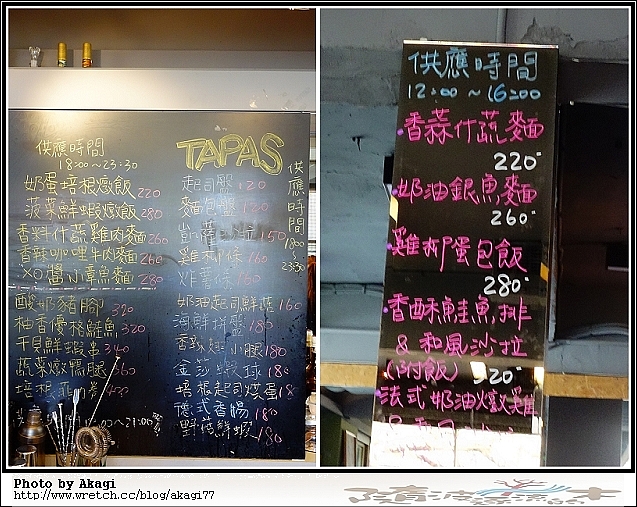 供應時間
18:00~23:30
奶蛋培根燉飯 220
菠菜鮮蝦燉飯 280
香料什蔬雞肉麵 260
香辣咖哩牛肉麵 260
XO醬小章魚麵 280
酸奶豬腳 320
柚香優格鮭魚 320
干貝鮮蝦串 340
蔬菜燉鴨腿 360
培根菲力 400
TAPAS
供應時間
18:00~23:30
起司盤 120
麵包盤 120
凱薩沙拉 150
雞柳條 160
炸薯條 160
奶油起司鮮菇 160
海鮮拼盤 180
小腿 180
金莎蝦球 180
培根起司烘蛋 18
德式香腸 180
野菇鮮蝦 180
供應時間
12:00~16:00
香蒜什蔬麵
220
奶油銀魚麵
260
雞柳蛋包飯
280
香酥鮭魚排
&和風沙拉
(附飯) 320
法式奶油燉雞
Photo by Akagi
http://www.wretch.cc/blog/akagi77